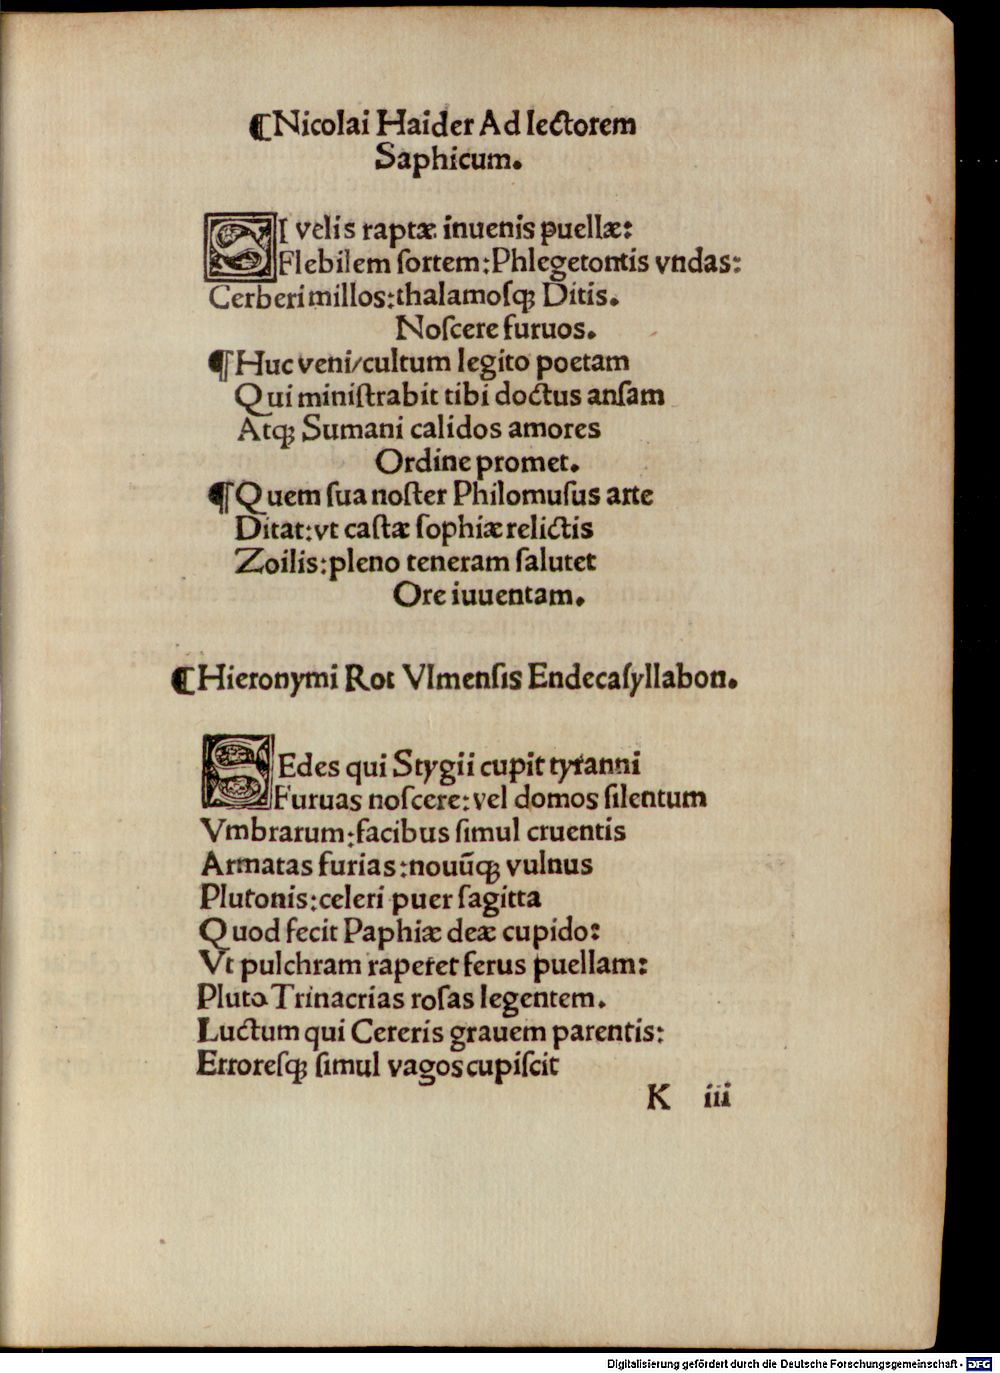 ¶Nicolai Haider Ad lectorem
Saphicum.
SI velis raptæ inuenis puellæ:
Flebilem ſortem:Phlegetontis vndas:
Cerberi millos:thalamoſqꝫ Ditis.
Noſcere furuos.
¶Huc veni/cultum legito poetam
Qui miniſtrabit tibi doctus anſam
Atqꝫ Sumani calidos amores
Ordine promet.
¶Quem ſua noſter Philomuſus arte
Ditat:vt caſtæ ſophiæ relictis
Zoilis:pleno teneram ſalutet
Ore iuuentam.
¶Hieronymi Rot Vlmenſis Endecaſyllabon.
SEdes qui Stygii cupit tyranni
Furuas noſcere:vel domos ſilentum
Vmbrarum:facibus ſimul cruentis
Armatas furias:nouũqꝫ vulnus
Plutonis:celeri puer ſagitta
Quod fecit Paphiæ deæ cupido:
Vt pulchram raperet ferus puellam:
Pluto Trinacrias roſas legentem.
Luctum qui Cereris grauem parentis:
Erroreſqꝫ ſimul vagos cupiſcit
K iii
Digitalisierung gefördert durch die Deutsche Forschungsgemeinschaft - DFG